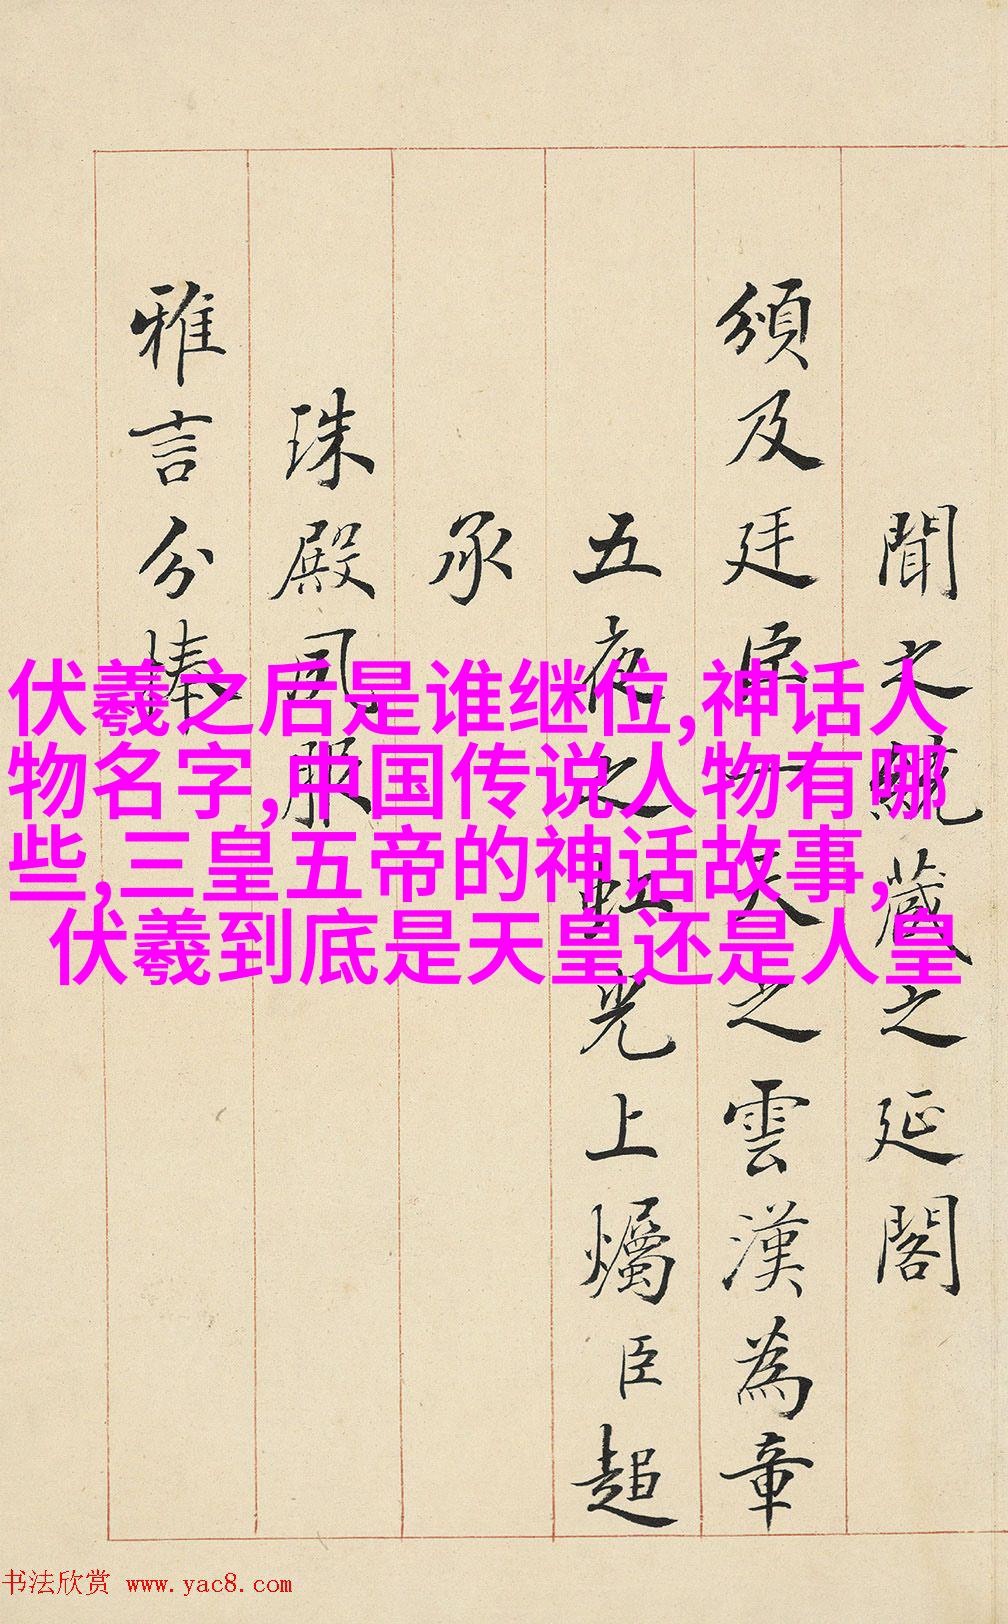 聞之藏之延閣
頒及廷臣一天之雲漢為章
五夜之虹光上爥臣超
承
珠殿服
雅言分捧
伏羲之后是谁继位,神话人
物名字,中国传说人物有哪
些,三皇五帝的神话故事,
伏羲到底是天皇还是人皇
书法欣赏 www.yac8.com